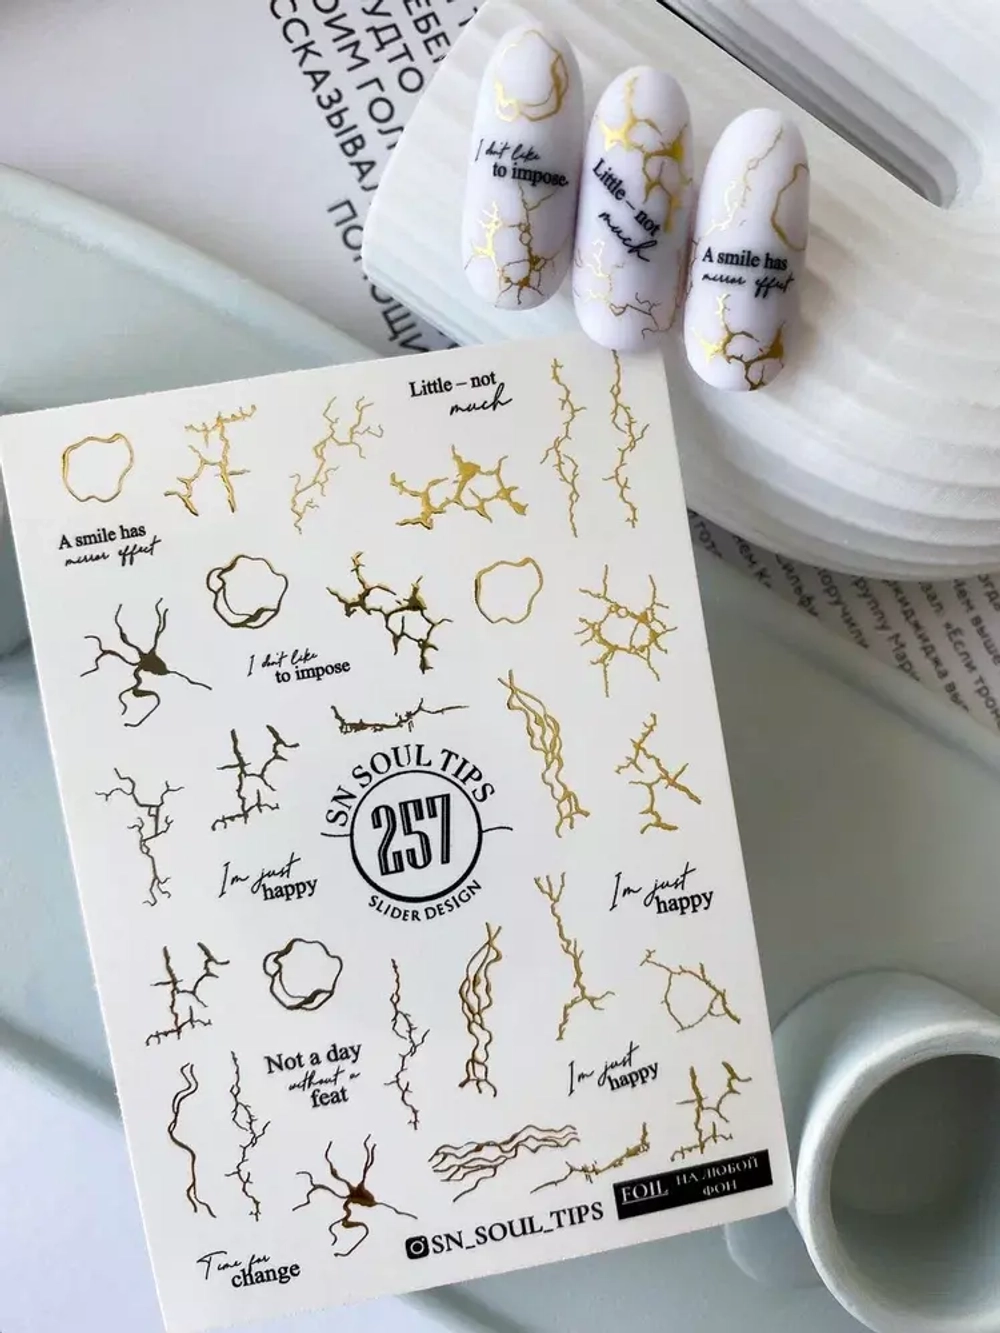 ЕБЕ
УДТО
ОИМ ГОЛ
ССКАЗЫВА
I don't like
to impose
Little – not
much
A smile has
mirror effect
Little – not
much
A smile has
mirror effect
I don't like
to impose
SN SOUL TIPS
257
SLIDER DESIGN
I'm just
happy
I'm just
happy
Not a day
without a
feat
I'm just
happy
FOIL НА ЛЮБОЙ
ФОН
SN_SOUL_TIPS
Time for
change
поручили
группу Мари
джиджа вы
зал. «Если трон